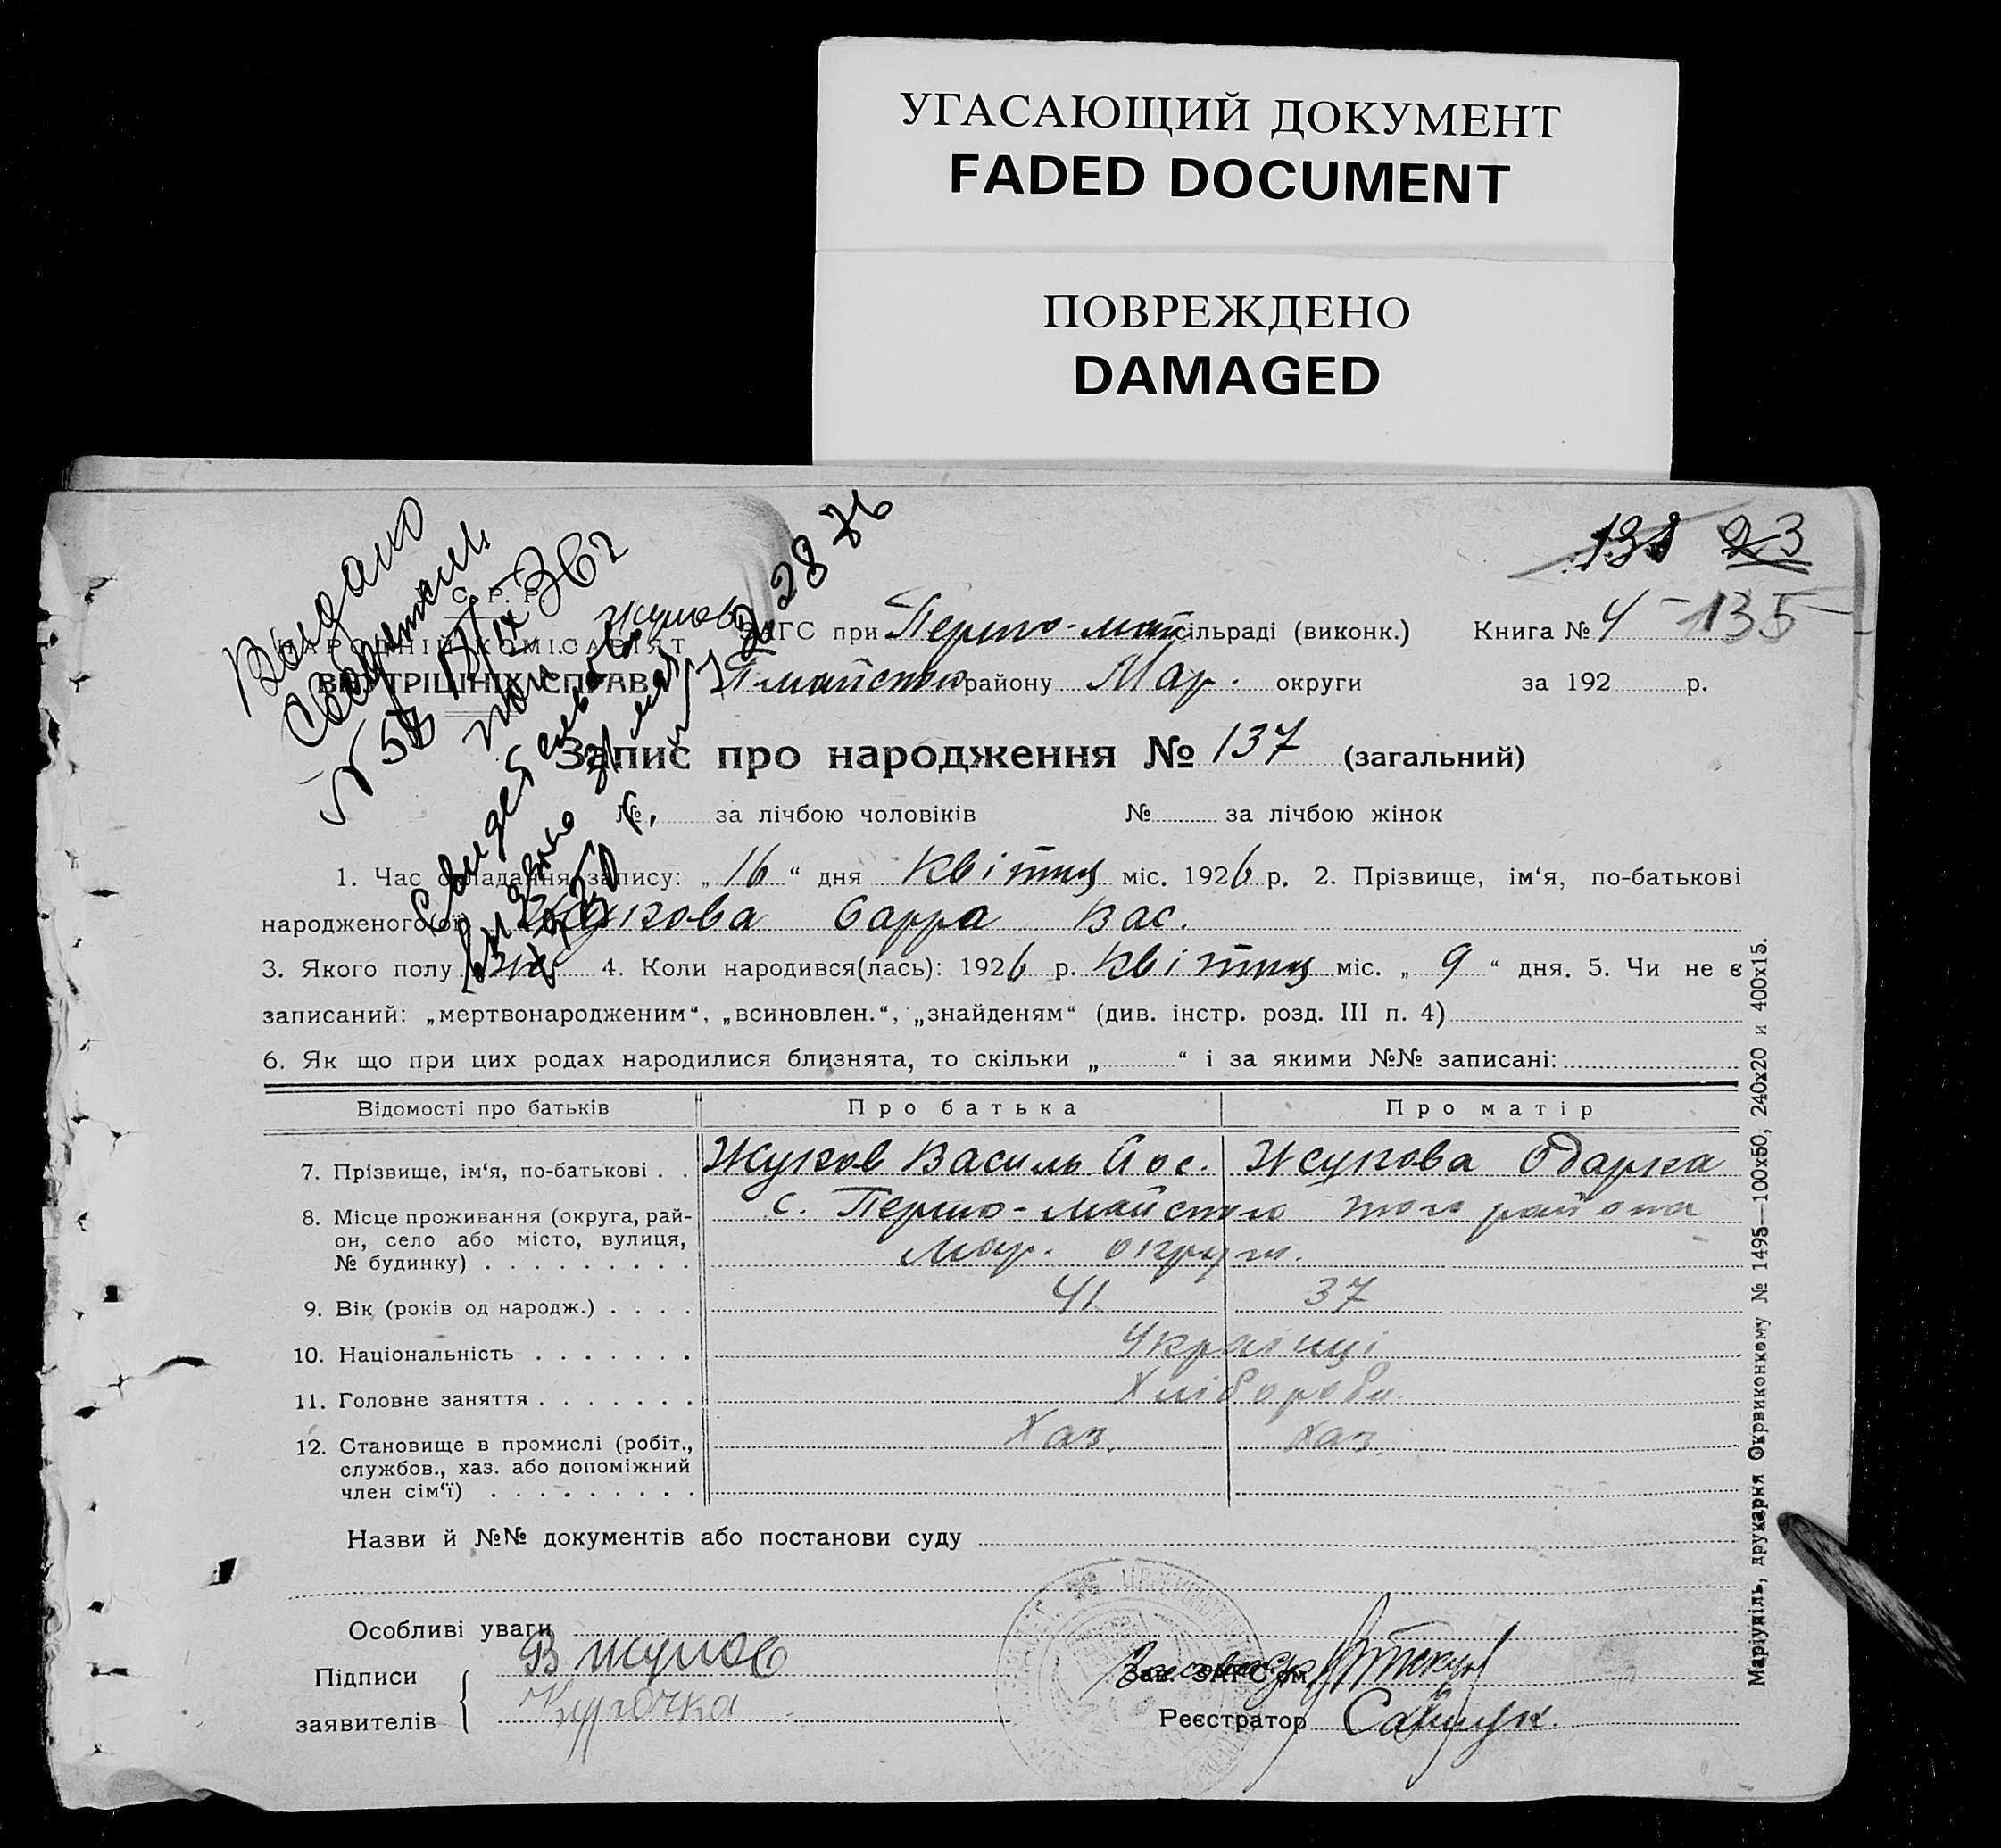 УГАСАЮЩИЙ ДОКУМЕНТ
FADED DOCUMENT
ПОВРЕЖДЕНО
DAMAGED
23
С. Р. Р.
НАРОДНІЙ КОМІСАРІЯТ
ВНУТРІШНІХ СПРАВ
ЗАГС при Перто-май сільраді (виконк.) Книга № 4 -135-
П майського району Мар. округи за 192 р.
Запис про народження № 137 (загальний)
№ за лічбою чоловіків № за лічбою жінок
1. Час складання запису: „ 16 “ дня Квітня міс. 1926 р. 2. Прізвище, ім‘я, по-батькові
народженого(ої) Жукова Сарра Вас.
3. Якого полу 4. Коли народився(лась): 1926 р. Квітня міс. „ 9 “ дня. 5. Чи не є
записаний: „мертвонародженим“, „всиновлен.“, „знайденям“ (див. інстр. розд. III п. 4)
6. Як що при цих родах народилися близнята, то скільки „ “ і за якими №№ записані:
Відомості про батьків Про батька Про матір
7. Прізвище, ім‘я, по-батькові . . Жуков Василь Йос. Жукова Одарка
8. Місце проживання (округа, рай-
он, село або місто, вулиця,
№ будинку) . . . . . . . . .
с. Перто-майського того района
Мар. округи.
9. Вік (років од народж.) . . . . 41 37
10. Національність . . . . . . . Українці
11. Головне заняття . . . . . . . Хлібороби
12. Становище в промислі (робіт.,
службов., хаз. або допоміжний
член сім‘ї) . . . . . . . . .
Хаз. Хаз.
Назви й №№ документів або постанови суду
Особливі уваги
Підписи
заявителів
В Жуков
Курочка
Зав. ЗАГС‘ом
Реєстратор Савчук.
Маріупіль, друкарня Окрвиконкому № 1495—100х50, 240х20 и 400х15.
Выдано
Свидетел.
28 76